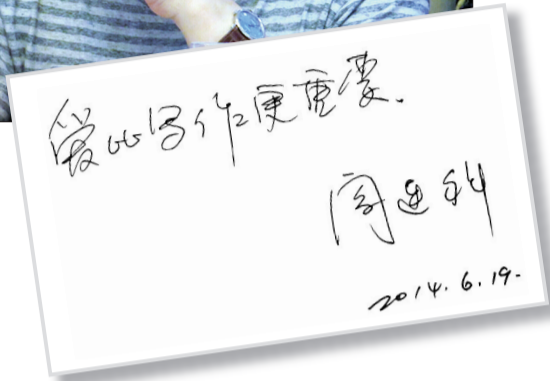 爱比写作更重要.
阎连科
2014.6.19.